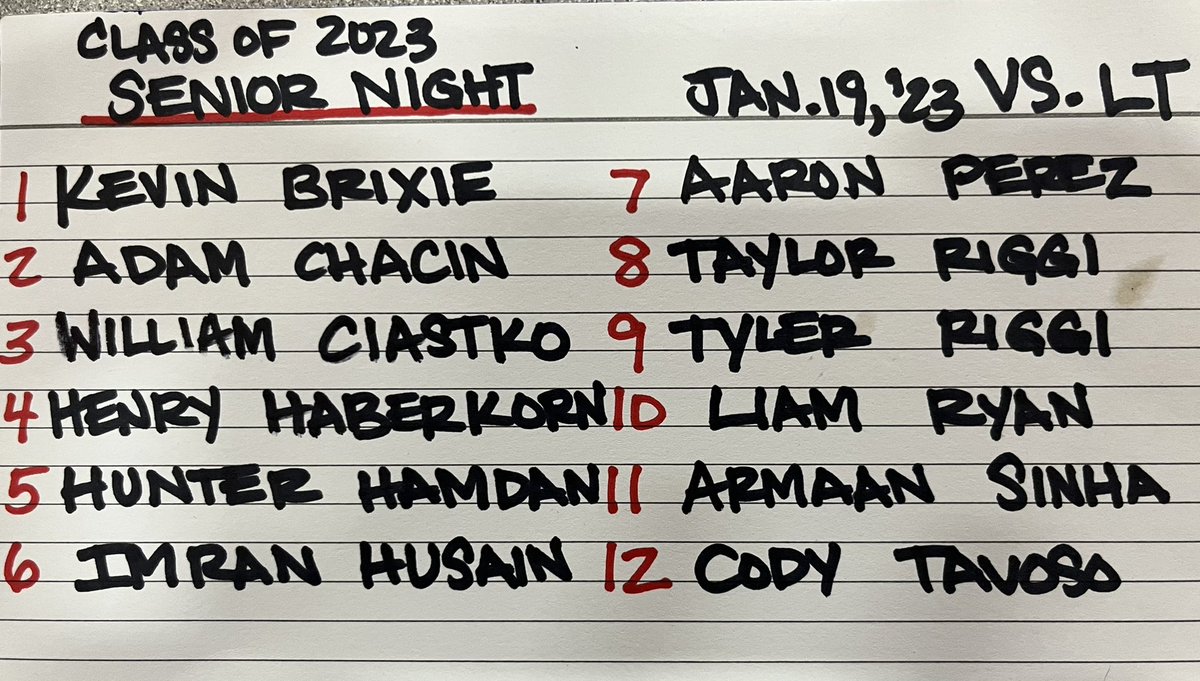 CLASS OF 2023
SENIOR NIGHT
JAN.19,'23 VS. LT
1 KEVIN BRIXIE
2 ADAM CHACIN
3 WILLIAM CIASTKO
4 HENRY HABERKORN
5 HUNTER HAMDAN
6 IMRAN HUSAIN
7 AARON PEREZ
8 TAYLOR RIGGI
9 TYLER RIGGI
10 LIAM RYAN
11 ARMAAN SINHA
12 CODY TAVOSO